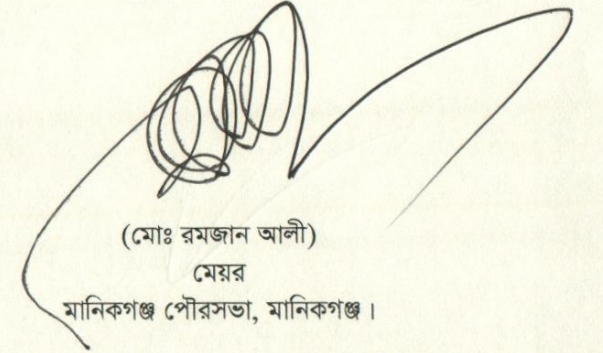 (মোঃ রমজান আলী)
মেয়র
মানিকগঞ্জ পৌরসভা, মানিকগঞ্জ।